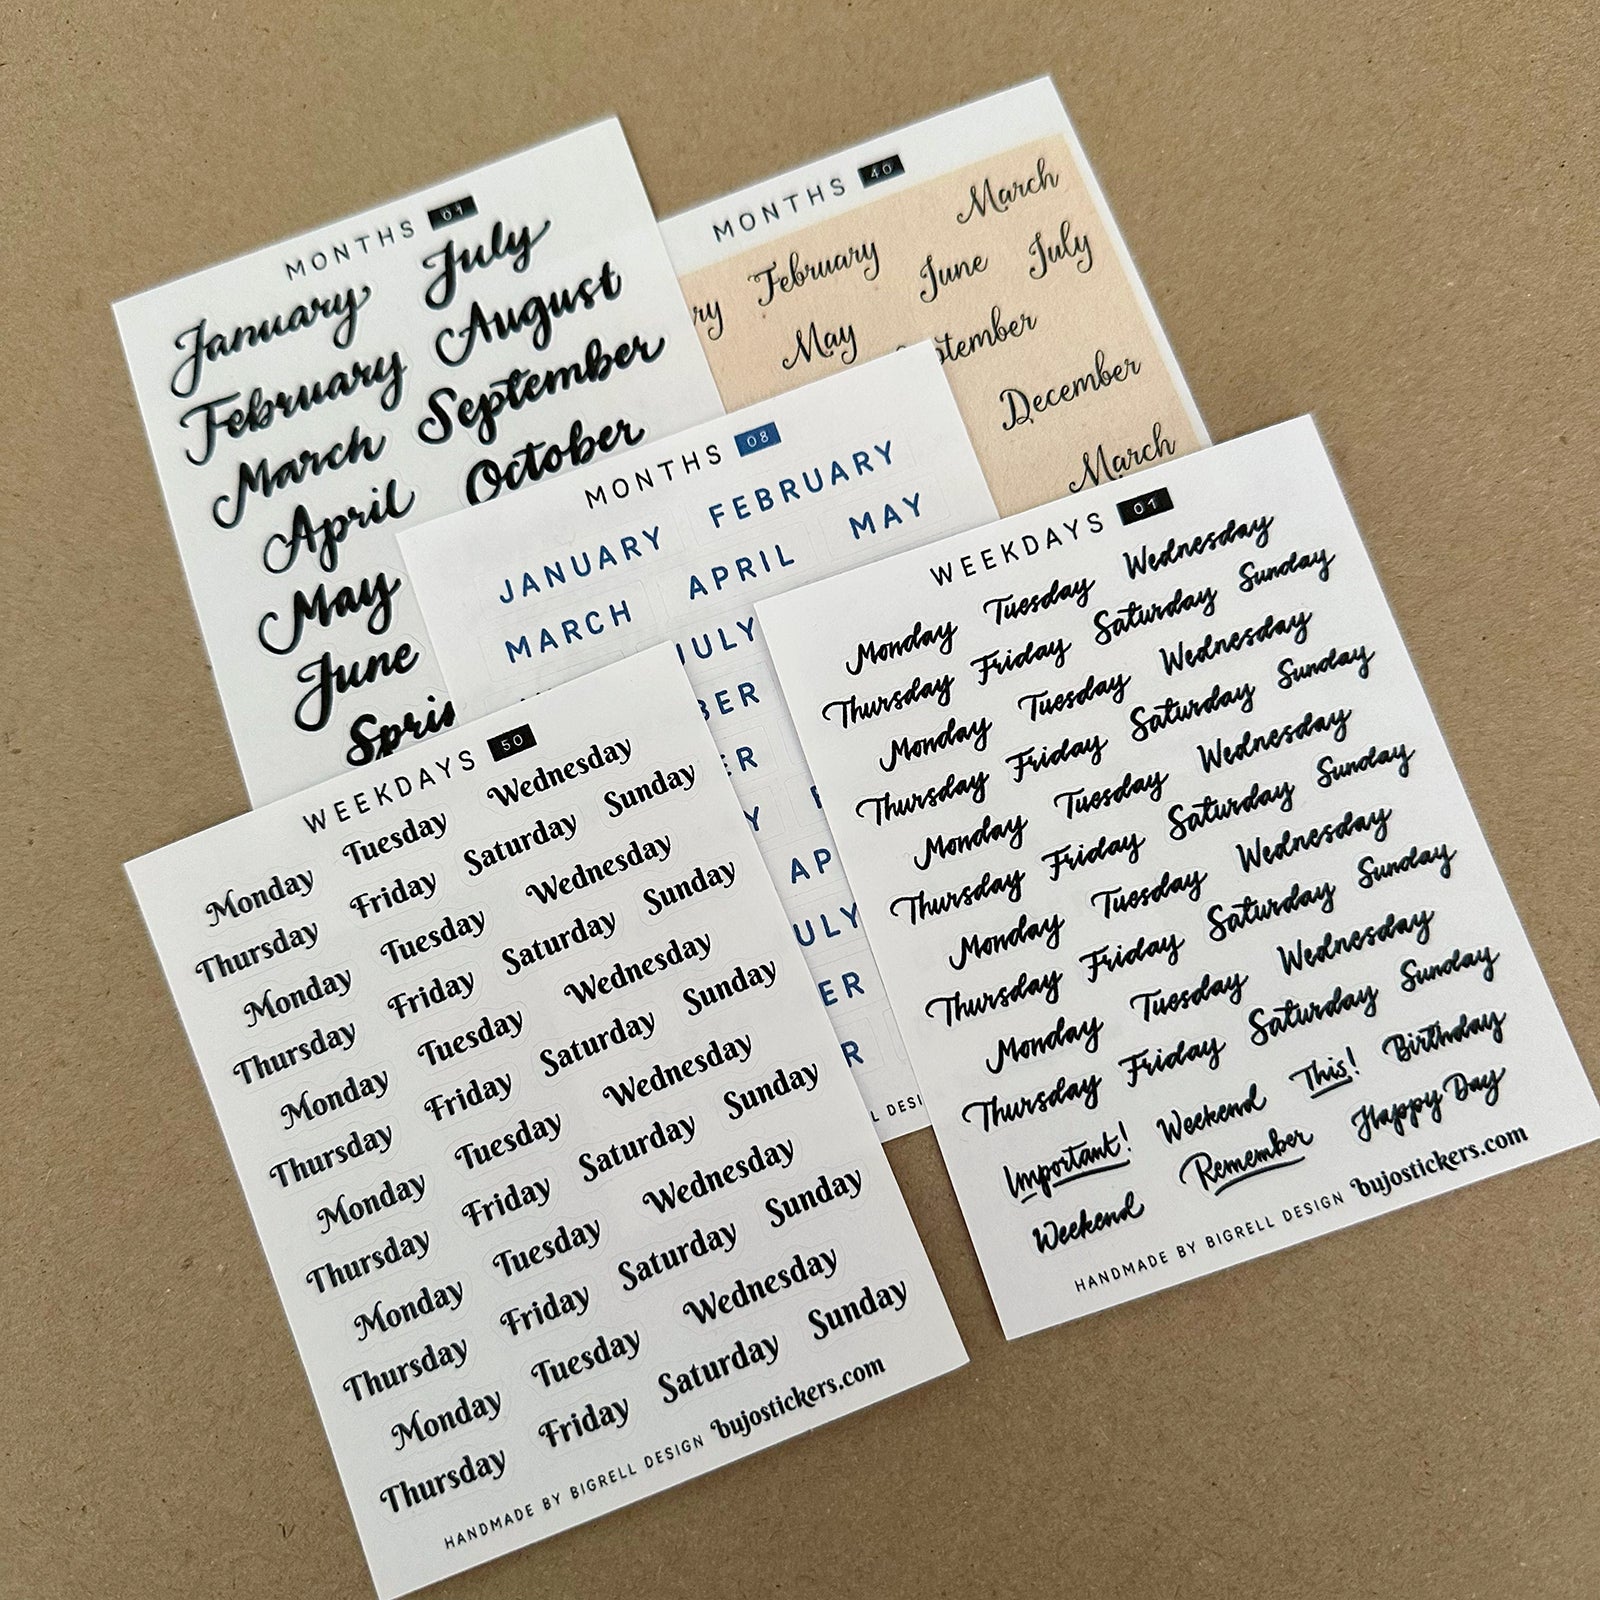 MONTHS 01
January July
February August
March September
April October
May
June
MONTHS 40
March
February June July
May
December
March
MONTHS 08
JANUARY FEBRUARY
MARCH APRIL MAY
JULY
WEEKDAYS 01
Monday Tuesday Wednesday
Thursday Friday Saturday Sunday
Monday Tuesday Wednesday
Thursday Friday Saturday Sunday
Monday Tuesday Wednesday
Thursday Friday Saturday Sunday
Monday Tuesday Wednesday
Thursday Friday Saturday Sunday
Monday Tuesday Wednesday
Thursday Friday Saturday Sunday
Important! Weekend This! Birthday
Weekend Remember Happy Day
HANDMADE BY BIGRELL DESIGN bujostickers.com
WEEKDAYS 50
Monday Tuesday Wednesday
Thursday Friday Saturday Sunday
Monday Tuesday Wednesday
Thursday Friday Saturday Sunday
Monday Tuesday Wednesday
Thursday Friday Saturday Sunday
Monday Tuesday Wednesday
Thursday Friday Saturday Sunday
Monday Tuesday Wednesday
Thursday Friday Saturday Sunday
Monday Tuesday Wednesday
Thursday Friday Saturday Sunday
HANDMADE BY BIGRELL DESIGN bujostickers.com